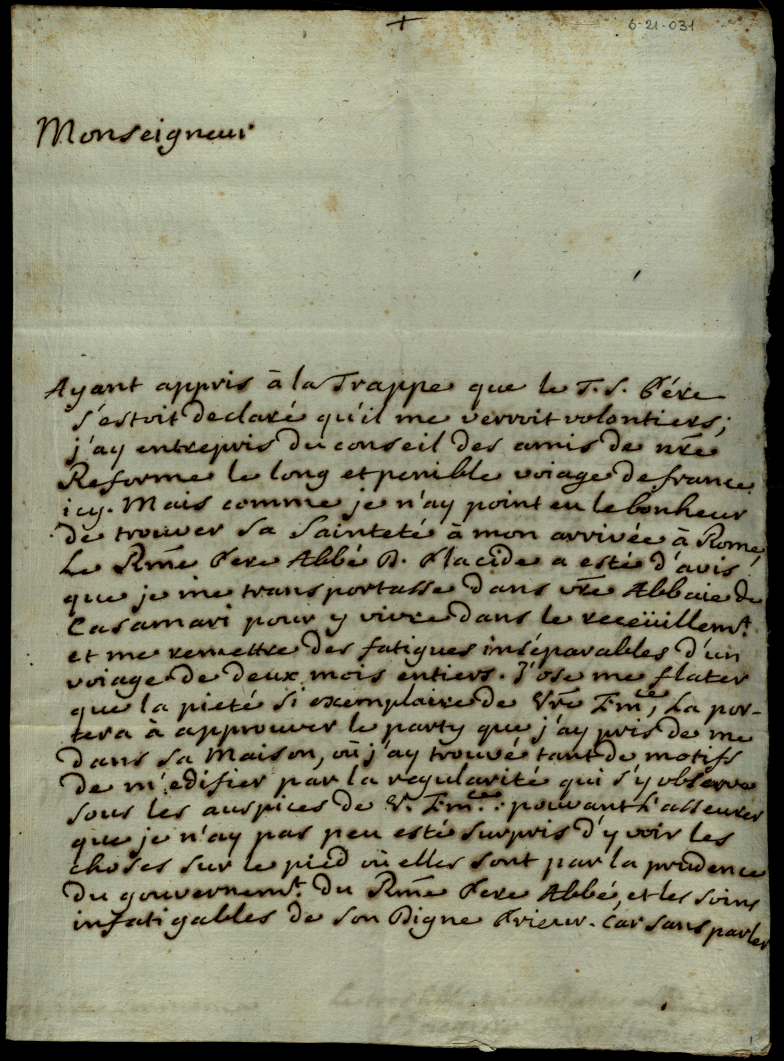 6-21-031
Monseigneur
Ayant appris à la Trappe que le T. S. Pére
s'estoit declaré qu'il me verroit volontiers;
j'ay entrepris du conseil des amis de nr̃e
Reforme le long et penible voiage de france
icy. Mais comme je n'ay point eu le bonheur
de trouver sa Sainteté à mon arrivée à Rome,
Le Rm̃e Pere Abbé D. Placide a esté d'avis
que je me transportasse dans vr̃e Abbaie de
Casamari pour y vivre dans le receüillemt.
et me remettre des fatigues inséparables d'un
voiage de deux mois entiers. J'ose me flater
que la pieté si exemplaire de Vr̃e Emce, La por-
tera à approuver le party que j'ay pris de me
dans sa Maison, où j'ay trouvé tant de motifs
de m'edifier par la regularité qui s'y observe
sous les auspices de V. Emce: pouvant L'asseurer
que je n'ay pas peu esté surpris d'y voir les
choses sur le pied où elles sont par la prudence
du gouvernemt. du Rm̃e Pere Abbé, et les soins
infatigables de son Digne Prieur. Car sans parler
1